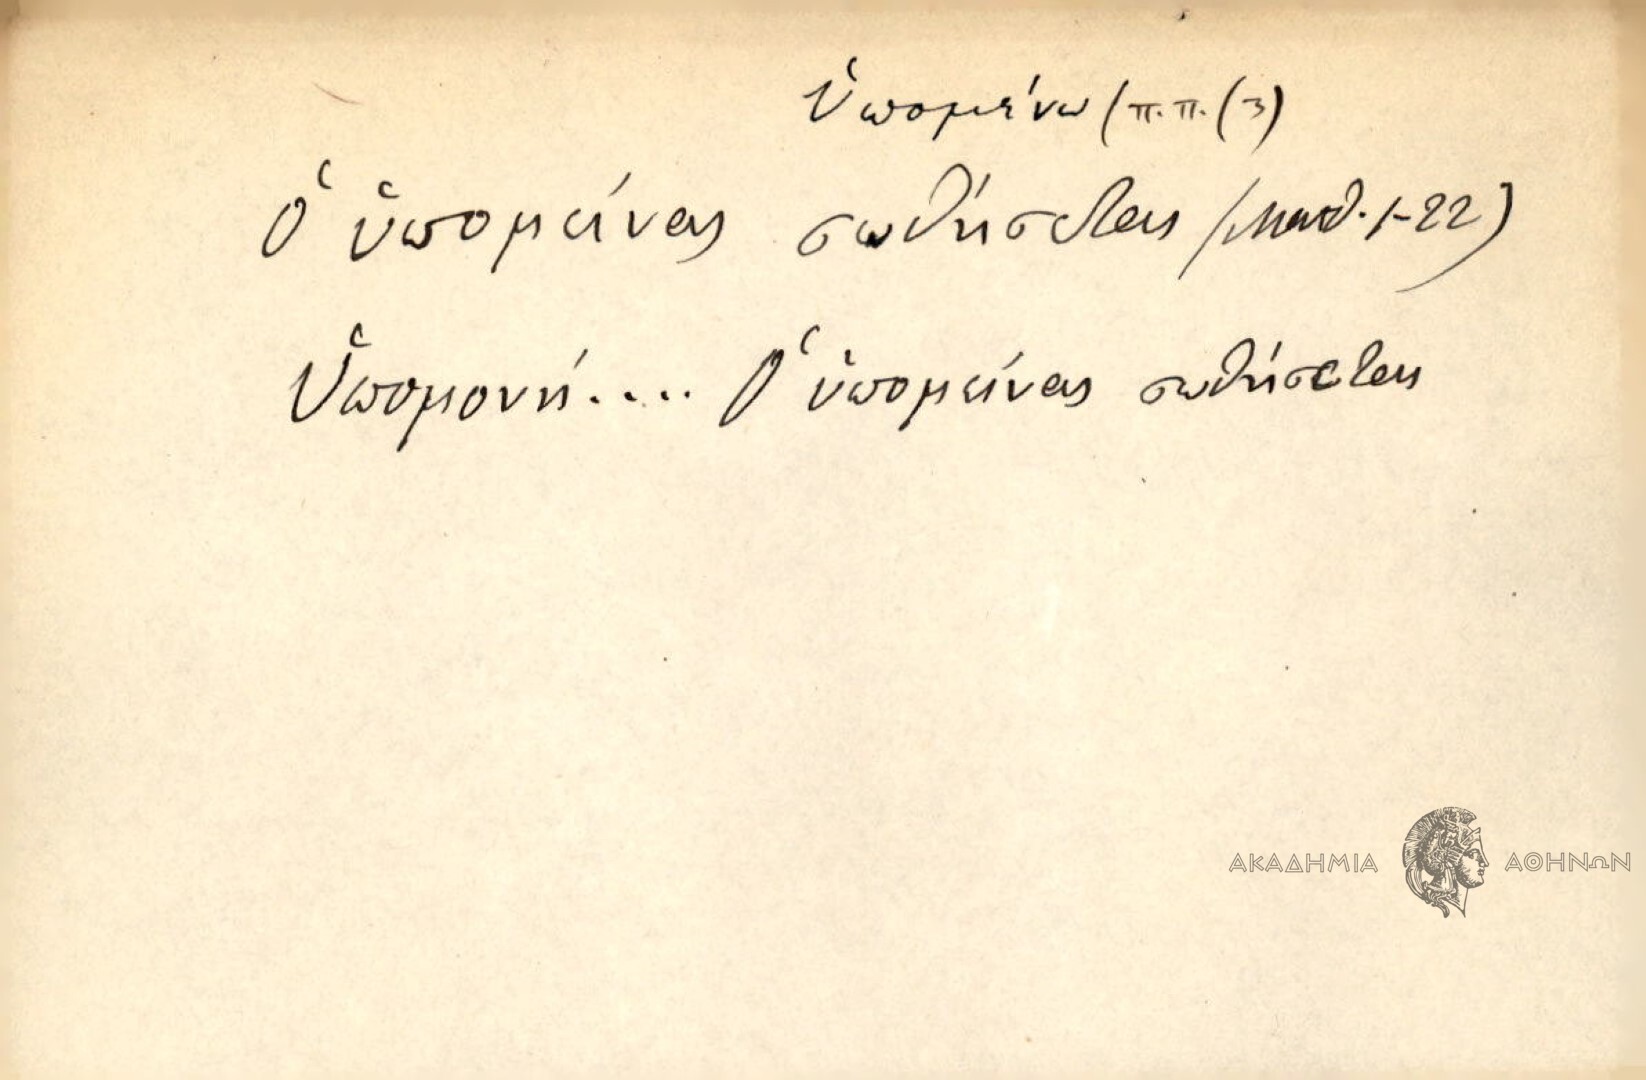 Ὑπομένω (π.π. (3)
Ὁ ὑπομείνας σωθήσεται (Ματθ. 1-22)
Ὑπομονή.... Ὁ ὑπομείνας σωθήσεται
ΑΚΑΔΗΜΙΑ ΑΘΗΝΩΝ